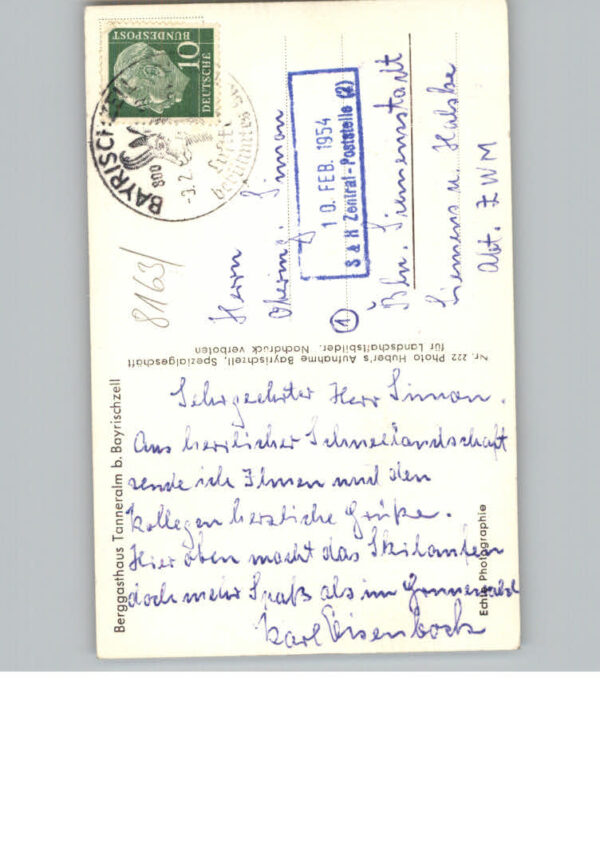 DEUTSCHE
BUNDESPOST
10
BAYRISCHZELL
800
-9.2.
berühmtes
8163/
Herrn
Obering. Simon
10. FEB. 1954
S & H Zentral-Poststelle (2)
1
Bln. Siemensstadt
Siemens u. Halske
Abt. ZWM
Nr. 222 Photo Huber's Aufnahme Bayrischzell, Spezialgeschäft
für Landschaftsbilder. Nachdruck verboten
Berggasthaus Tanneralm b. Bayrischzell
Sehrgeehrter Herr Simon.
Aus herrlicher Schneelandschaft
sende ich Ihnen und den
Kollegen herzliche Grüße.
Hier oben macht das Skilaufen
doch mehr Spaß als im Grunewald
Karl Eisenbock
Echte Photographie